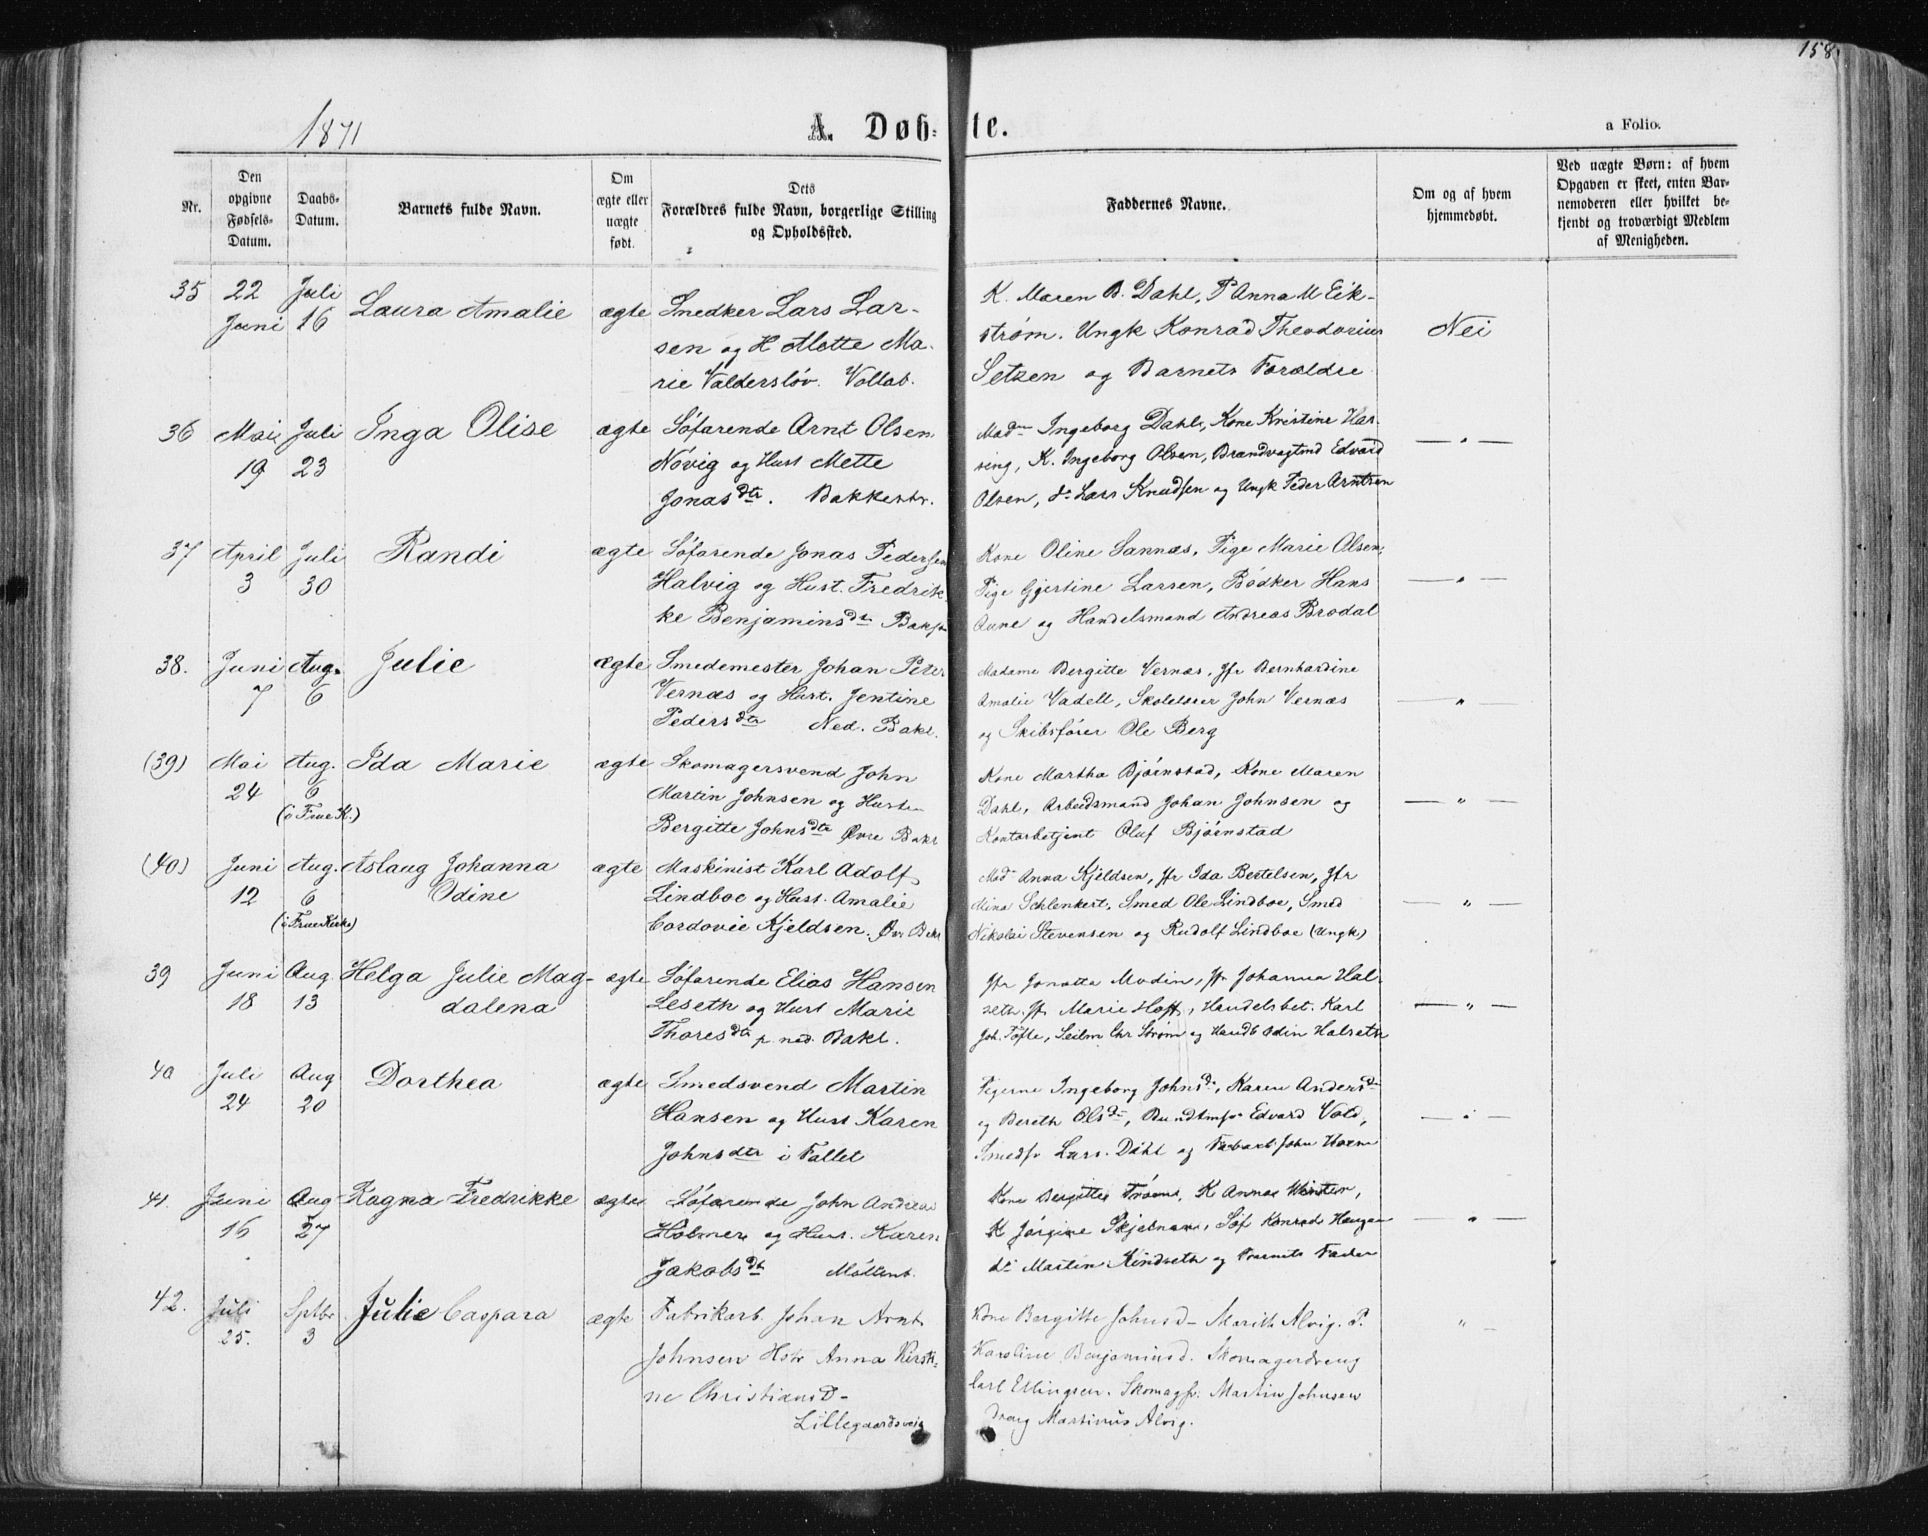 158
1871
A. Døb-te.
a Folio.
Nr.
Den opgivne Fødsels-Datum.
Daabs-Datum.
Barnets fulde Navn.
Om ægte eller uægte født.
Dets Forældres fulde Navn, borgerlige Stilling og Opholdssted.
Faddernes Navne.
Om og af hvem hjemmedøbt.
Ved uægte Børn: af hvem Opgaven er skeet, enten Barnemoderen eller hvilket bekjendt og troværdigt Medlem af Menigheden.
35 22 Juli Laura Amalie ægte Smedker Lars Lar- K. Maren B. Dahl, P Anna M Eik-
Juni 16 sen og H Mette Ma- strøm. Ungk Konrad Theodorius Nei
rie Valdersløv. Vollab. Setzen og Barnets Forældre
36 Mai Juli Inga Olise ægte Søfarende Arnt Olsen Mad Ingeborg Dahl, Kone Kristine Har-
19 23 Növig og Hust Mette sing, K. Ingeborg Olsen, Brandvagtmd Edvard — " —
Jonasdtr. Bakkestr. Olsen, do Lars Knudsen og Ungk Peder Arntsen
37 April Juli Randi ægte Søfarende Jonas Pedersen Kone Oline Sannæs, Pige Marie Olsen,
3 30 Halvig og Hust. Fredrik- Pige Gjertine Larsen, Bødker Hans — " —
ke Benjaminsdtr Aune og Handelsmand Andreas Brodal
38. Juni Aug. Julie ægte Smedemester Johan Peter Madame Bergitte Vernæs, Jfr Bernhardine
7 6 Vernæs og Hust. Jentine Amalie Vadell, Skolelærer John Vernæs — " —
Pedersdtr Ned. Bakl. og Skibsfører Ole Berg
(39) Mai Aug. Ida Marie ægte Skomagersvend John Kone Martha Bjørnstad, Kone Maren
24 6 Martin Johnsen og Hustr Dahl, Arbeidsmand Johan Johnsen og — " —
(i Frue K.) Bergitte Johnsdtr Øvre Bakl Kontorbetjent Oluf Bjørnstad
(40) Juni Aug. Aslaug Johanna ægte Maskinist Karl Adolf Mad Anna Kjeldsen, Jfr Ida Bertelsen, Jfr
12 6 Odine Lindboe og Hust. Amalie Mina Schlenkert, Smed Ole Lindboe, Smed — " —
(i Frue Kirke) Cordovie Kjeldsen. Øv. Bakl Nikolai Stevensen og Rudolf Lindboe (Ungk)
39 Juni Aug Helga Julie Mag- ægte Søfarende Elias Hansen Jfr Jonatta Modin, Jfr Johanna Hal-
18 13 dalena Leseth og Hust Marie seth Jfr Marie Hoff, Handelsbet. Karl — " —
Thoresdtr p. ned. Bakl. Joh. Tofte, Seilm Chr Strøm og Handb Odin Halseth
40 Juli Aug Dorthea ægte Smedsvend Martin Pigerne Ingeborg Johnsd, Karen Andersd
24 20 Hansen og Hust Karen og Bereth Olsd, Edvard Vold, — " —
Johnsdtr i Fallet Smedsv Lars Dahl og John
41. Juni Aug Ragna Fredrikke ægte Søfarende John Andreas Kone Bergitte K Anna
16 27 Holmer og Hust. Karen K Jörgine Søf Konrad Haugan — " —
Jakobsdtr Møllenb. do Martin Kindseth og Barnets Fader
42. Juli Sptbr Julie Caspara ægte Fabrikarb. Johan Arnt Kone Bergitte Johnsd- Marith Alvig. P.
25. 3 Johnsen Hstr Anna Kirsti- Karoline Benjaminsd. Skomagerdreng " —
ne Christiansd- Carl Ellingsen. Skomagsv. Martin Johnsen
Lillegaardsveig dreng Martinus Alvig.